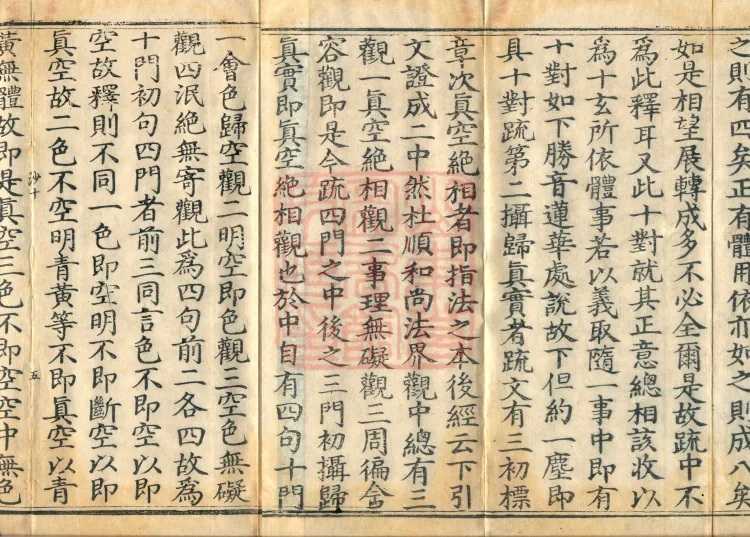 之則有四矣正有體用依亦如之則成八矣
如是相望展轉成多不必全爾是故疏中不
爲此釋耳又此十對就其正意總相該收以
爲十玄所依體事若以義取隨一事中即有
十對如下勝音蓮華處說故下但約一塵即
具十對疏第二攝歸眞實者疏文有三初標
章次眞空絶相者即指法之本後經云下引
文證成二中然杜順和尚法界觀中總有三
觀一眞空絶相觀二事理無礙觀三周徧含
容觀即是今疏四門之中後之三門初攝歸
眞實即眞空絶相觀也於中自有四句十門
一會色歸空觀二明空即色觀三空色無礙
觀四泯絶無寄觀此爲四句前二各四故爲
十門初句四門者前三同言色不即空以即
空故釋則不同一色即空明不即斷空以即
眞空故二色不空明青黃等不即眞空以青
沙十 五
黃無體故即是眞空三色不即空空中無色